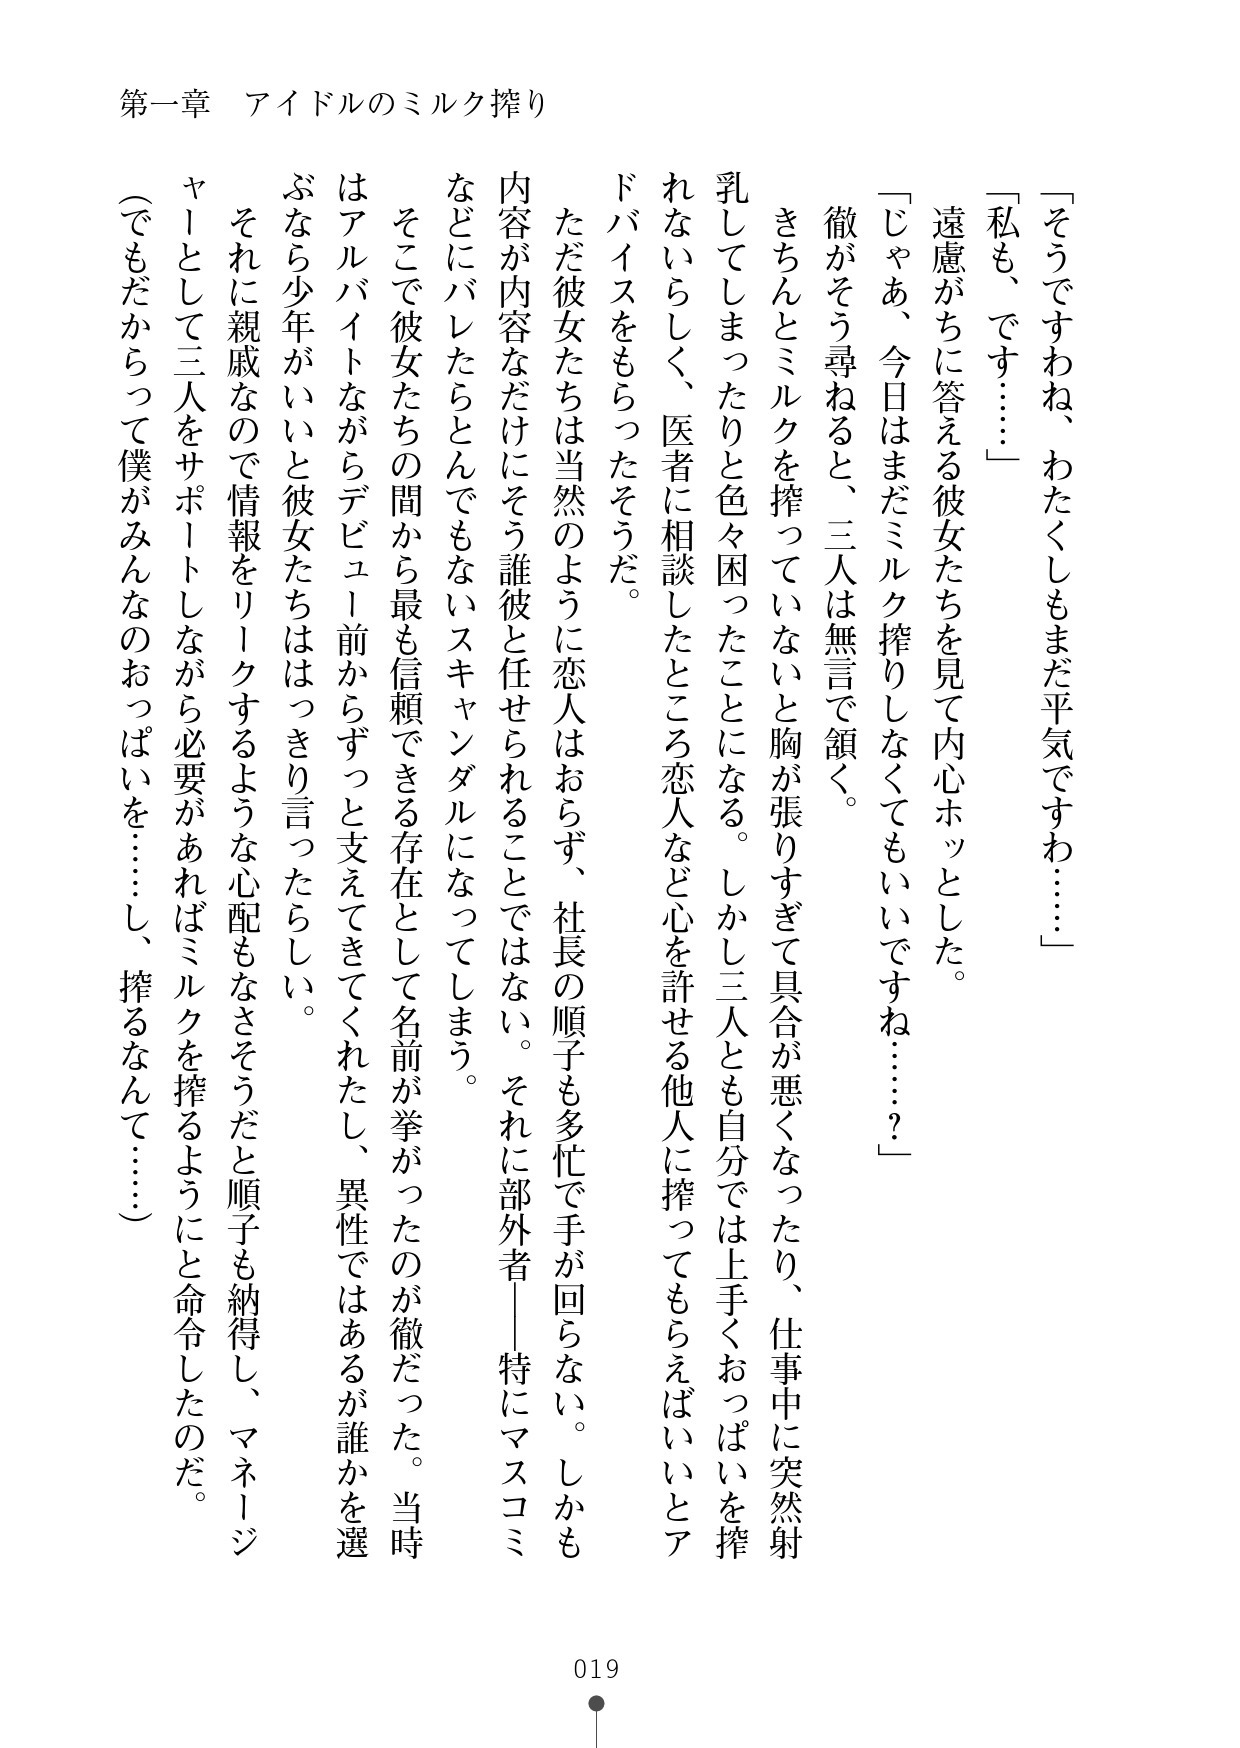 第一章　アイドルのミルク搾り
「そうですわね、わたくしもまだ平気ですわ……」
「私も、です……」
　遠慮がちに答える彼女たちを見て内心ホッとした。
「じゃあ、今日はまだミルク搾りしなくてもいいですね……？」
　徹がそう尋ねると、三人は無言で頷く。
　きちんとミルクを搾っていないと胸が張りすぎて具合が悪くなったり、仕事中に突然射
乳してしまったりと色々困ったことになる。しかし三人とも自分では上手くおっぱいを搾
れないらしく、医者に相談したところ恋人など心を許せる他人に搾ってもらえばいいとア
ドバイスをもらったそうだ。
　ただ彼女たちは当然のように恋人はおらず、社長の順子も多忙で手が回らない。しかも
内容が内容なだけにそう誰彼と任せられることではない。それに部外者――特にマスコミ
などにバレたらとんでもないスキャンダルになってしまう。
　そこで彼女たちの間から最も信頼できる存在として名前が挙がったのが徹だった。当時
はアルバイトながらデビュー前からずっと支えてきてくれたし、異性ではあるが誰かを選
ぶなら少年がいいと彼女たちははっきり言ったらしい。
　それに親戚なので情報をリークするような心配もなさそうだと順子も納得し、マネージ
ャーとして三人をサポートしながら必要があればミルクを搾るようにと命令したのだ。
（でもだからって僕がみんなのおっぱいを……し、搾るなんて……）
019